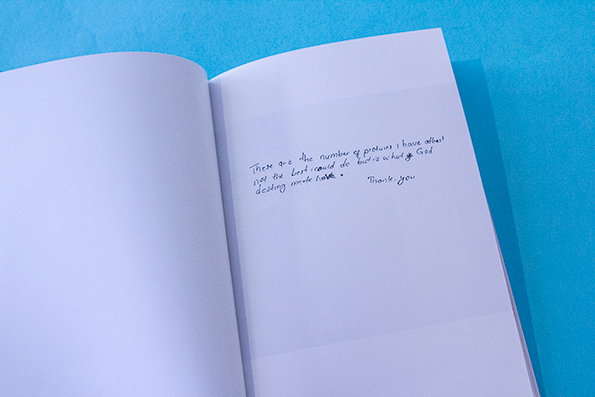 These are the number of pictures I have
not the best I could do but is what God
destiny made have. Thank-you